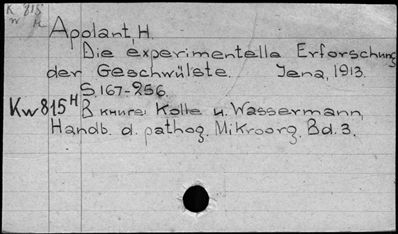 K 815
w H
Apolant, H.
Die experimentella Erforschung
der Geschwülste. Jena, 1913.
S. 167-256.
Kw 815 H В книге: Kolle u. Wassermann,
Handb. d. pathog. Mikroorg. Bd. 3.